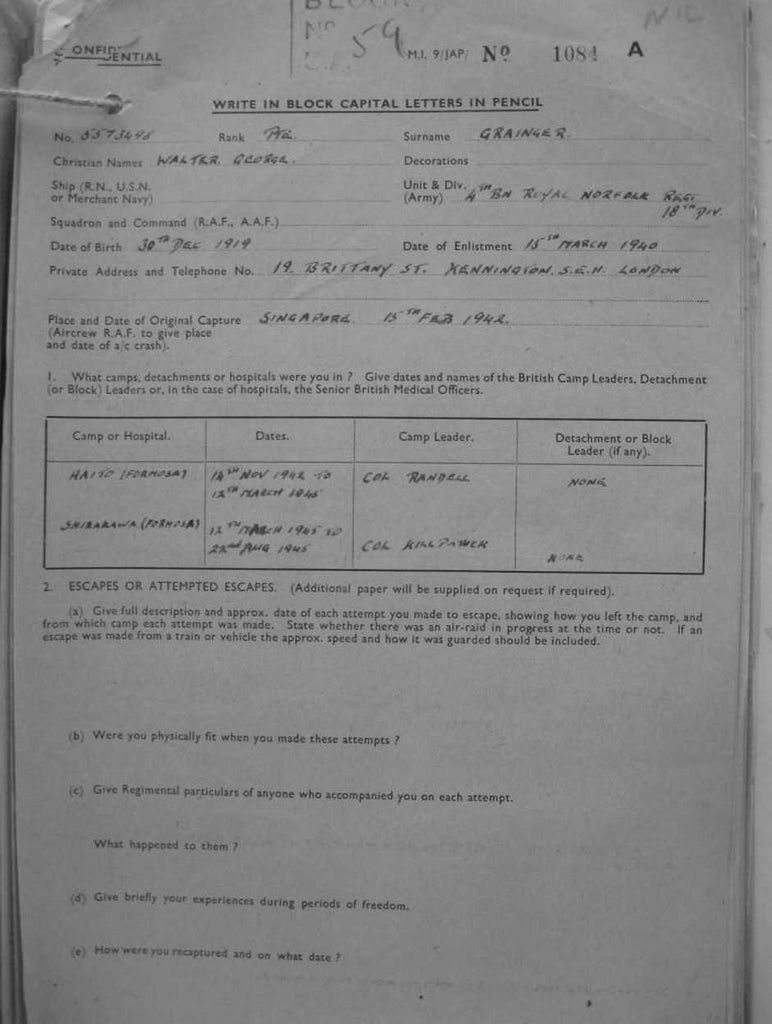 BLOCK
Nº 59
NIL
CONFIDENTIAL
M.I. 9/JAP/ Nº 1084 A
WRITE IN BLOCK CAPITAL LETTERS IN PENCIL
No. 5573495 Rank Pte. Surname GRAINGER.
Christian Names WALTER. GEORGE. Decorations
Ship (R.N., U.S.N. or Merchant Navy)
Unit & Div. (Army) 4TH BN ROYAL NORFOLK REGT
18TH DIV.
Squadron and Command (R.A.F., A.A.F.)
Date of Birth 30TH DEC 1919 Date of Enlistment 15TH MARCH 1940
Private Address and Telephone No. 19. BRITTANY ST. KENNINGTON. S.E.11. LONDON
Place and Date of Original Capture SINGAPORE. 15TH FEB 1942.
(Aircrew R.A.F. to give place
and date of a/c crash).
1. What camps, detachments or hospitals were you in ? Give dates and names of the British Camp Leaders, Detachment
(or Block) Leaders or, in the case of hospitals, the Senior British Medical Officers.
Camp or Hospital. Dates. Camp Leader. Detachment or Block
Leader (if any).
HAITO (FORMOSA) 14TH NOV 1942 TO COL RANDELL NONE
12TH MARCH 1945
SHIRAKAWA (FORMOSA) 12TH MARCH 1945 TO
22nd AUG 1945 COL NONE
2. ESCAPES OR ATTEMPTED ESCAPES. (Additional paper will be supplied on request if required).
(a) Give full description and approx. date of each attempt you made to escape, showing how you left the camp, and
from which camp each attempt was made. State whether there was an air-raid in progress at the time or not. If an
escape was made from a train or vehicle the approx. speed and how it was guarded should be included.
(b) Were you physically fit when you made these attempts ?
(c) Give Regimental particulars of anyone who accompanied you on each attempt.
What happened to them ?
(d) Give briefly your experiences during periods of freedom.
(e) How were you recaptured and on what date ?